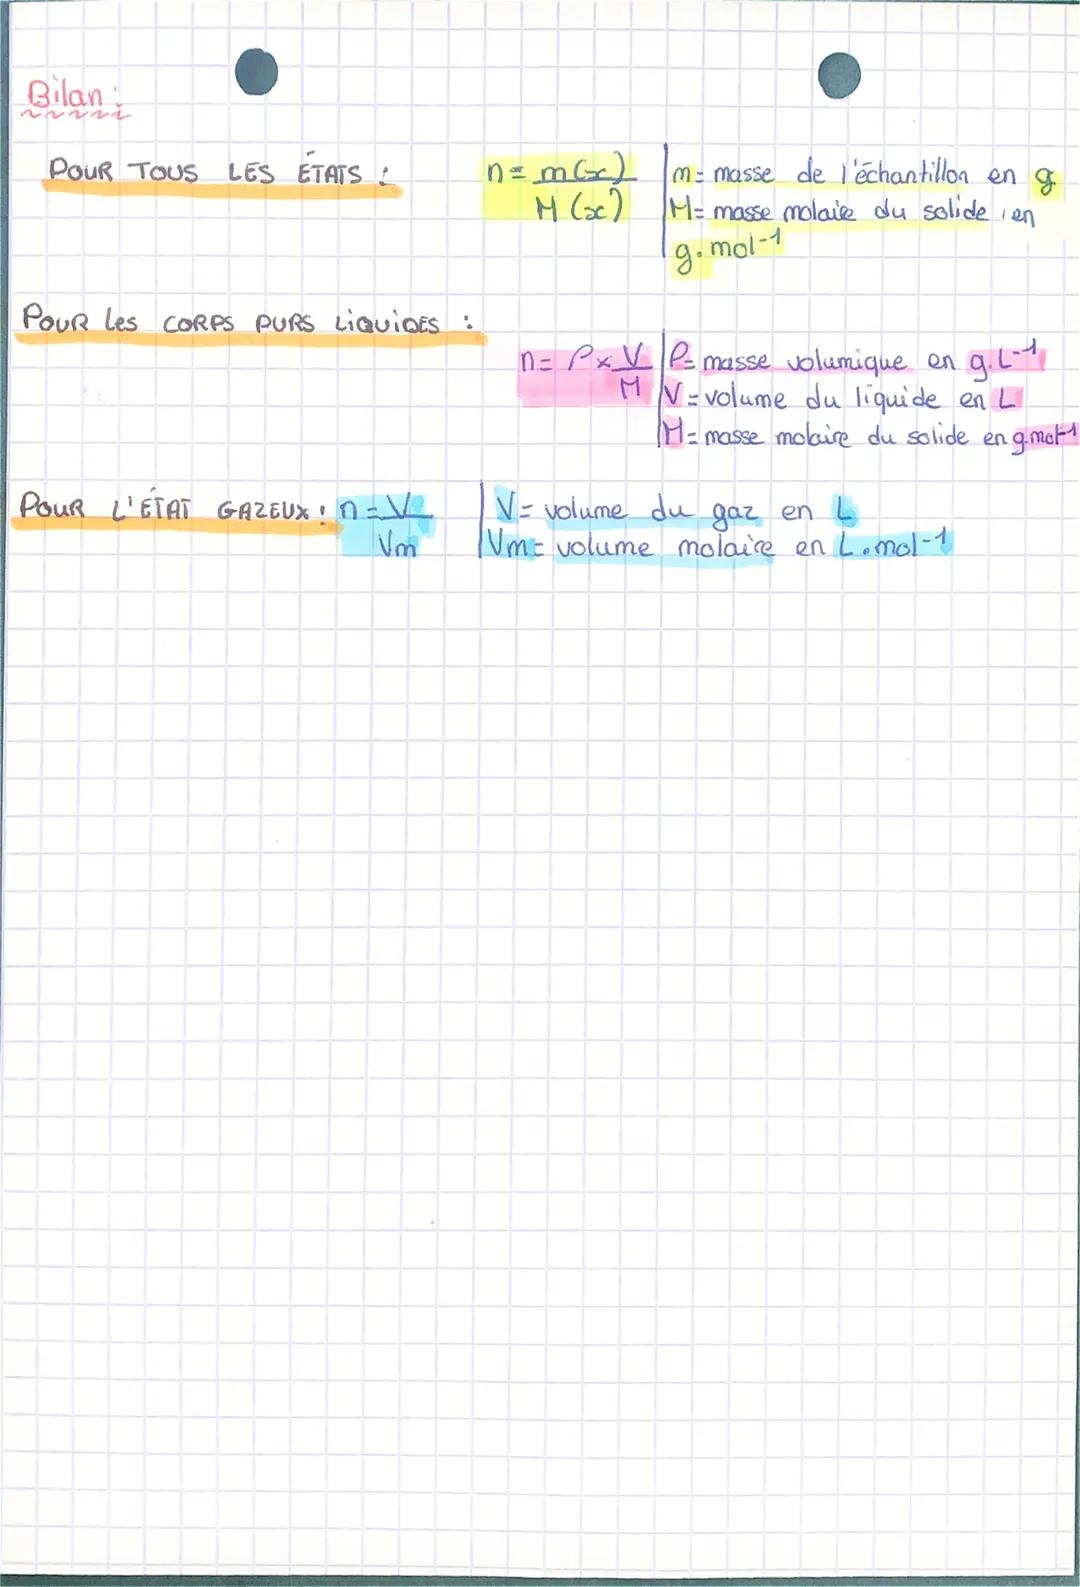 Bilan :
POUR TOUS LES ÉTATS : n = m(x) / M(x) | m = masse de l'échantillon en g
M = masse molaire du solide, en
g.mol-1
POUR Les CORPS PURS LiQUiDES :
n = ρ x V / M | ρ = masse volumique en g.L-1
V = volume du liquide en L
M = masse molaire du solide en g.mol-1
POUR L'ÉTAT GAZEUX : n = V / Vm | V = volume du gaz en L
Vm = volume molaire en L.mol-1